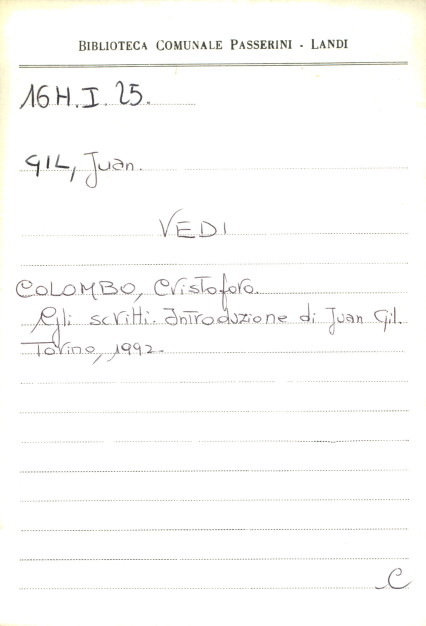 BIBLIOTECA COMUNALE PASSERINI - LANDI
16H.I.25.
GIL, Juan.
VEDI
COLOMBO, Cristoforo.
Gli scritti. Introduzione di Juan Gil.
Torino, 1992.
C